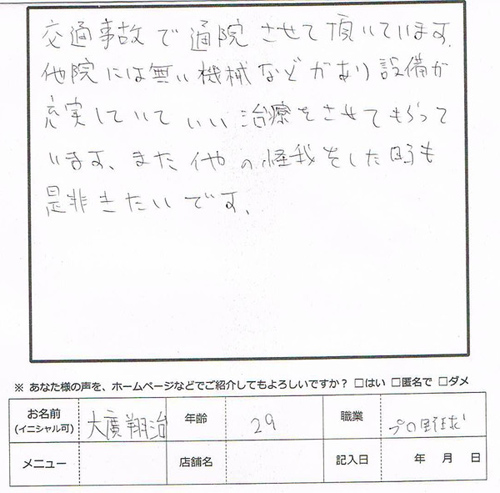 交通事故で通院させて頂いています。
他院には無い機械などがあり設備が
充実していていい治療をさせてもらって
います。また他の怪我をした時も
是非きたいです。
※ あなた様の声を、ホームページなどでご紹介してもよろしいですか？ □はい □匿名で □ダメ
お名前 (イニシャル可) 大廣翔治 年齢 29 職業 プロ野球
メニュー 店舗名 記入日 年 月 日